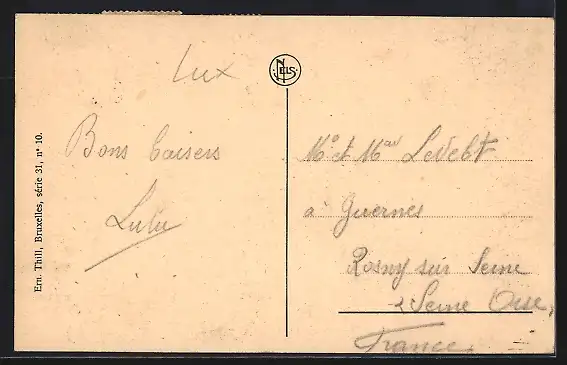 Lux
NELS
Ern. Thill, Bruxelles, série 31, n° 10.
Bons baisers
Lulu
Mr et Mme Levebt
à Guernes
Rosny sur Seine
Seine Oise,
France,